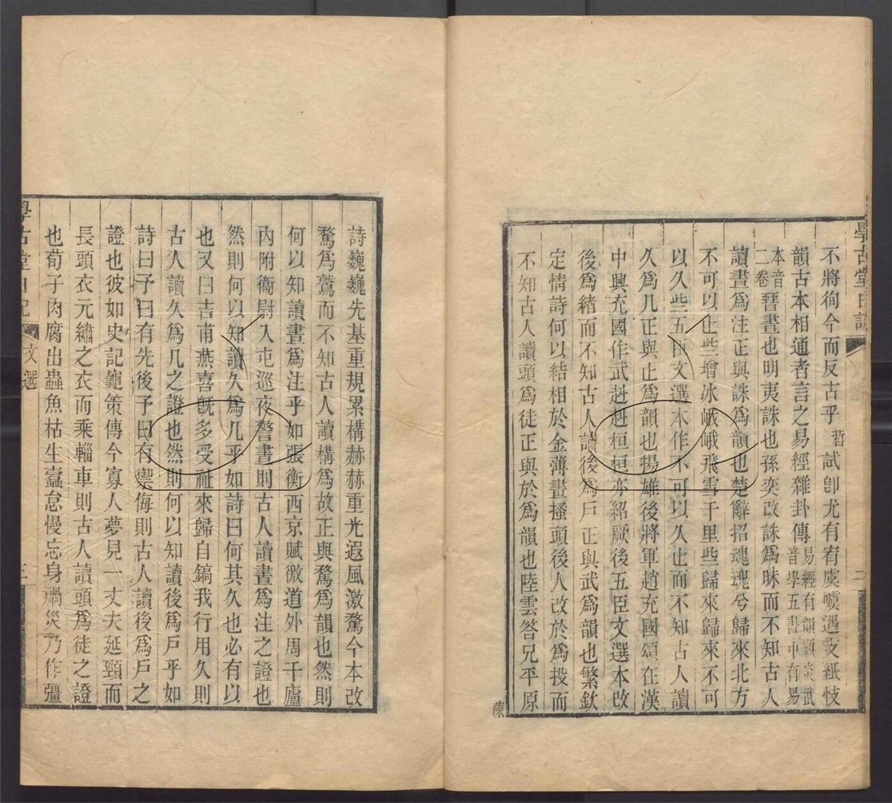 學古堂日記
二
不將徇今而反古乎哲試卽尤有宥庱嘆遇支紙忮
韻古本相通者言之易經雜卦傳易經有韻顧炎武音學五書中有易
本音二卷晉晝也明夷誅也孫奕改誅爲昧而不知古人
讀晝爲注正與誅爲韻也楚辭招魂魂兮歸來北方
不可以止些增冰峨峨飛雪千里些歸來歸來不可
以久些五臣文選本作不可以久止而不知古人讀
久爲几正與止爲韻也揚雄後將軍趙充國頌在漢
中興充國作武赳赳桓桓亦紹厥後五臣文選本改
後爲緒而不知古人讀後爲戸正與武爲韻也繁欽
定情詩何以結相於金薄畫搔頭後人改於爲投而
不知古人讀頭爲徒正與於爲韻也陸雲答兄平原
陳
詩巍巍先基重規累構赫赫重光遐風激騖今本改
騖爲鶩而不知古人讀構爲故正與騖爲韻也然則
何以知讀晝爲注乎如張衡西京賦徼道外周千廬
內附衞尉入屯巡夜警晝則古人讀晝爲注之證也
然則何以知讀久爲几乎如詩曰何其久也必有以
也又曰吉甫燕喜旣多受祉來歸自鎬我行用久則
古人讀久爲几之證也然則何以知讀後爲戸乎如
詩曰予曰有先後予曰有禦侮則古人讀後爲戸之
證也彼如史記龜策傳今寡人夢見一丈夫延頸而
長頭衣元繡之衣而乘輜車則古人讀頭爲徒之證
也荀子肉腐出蟲魚枯生蠹怠慢忘身禍災乃作彊
學古堂日記
文選
三